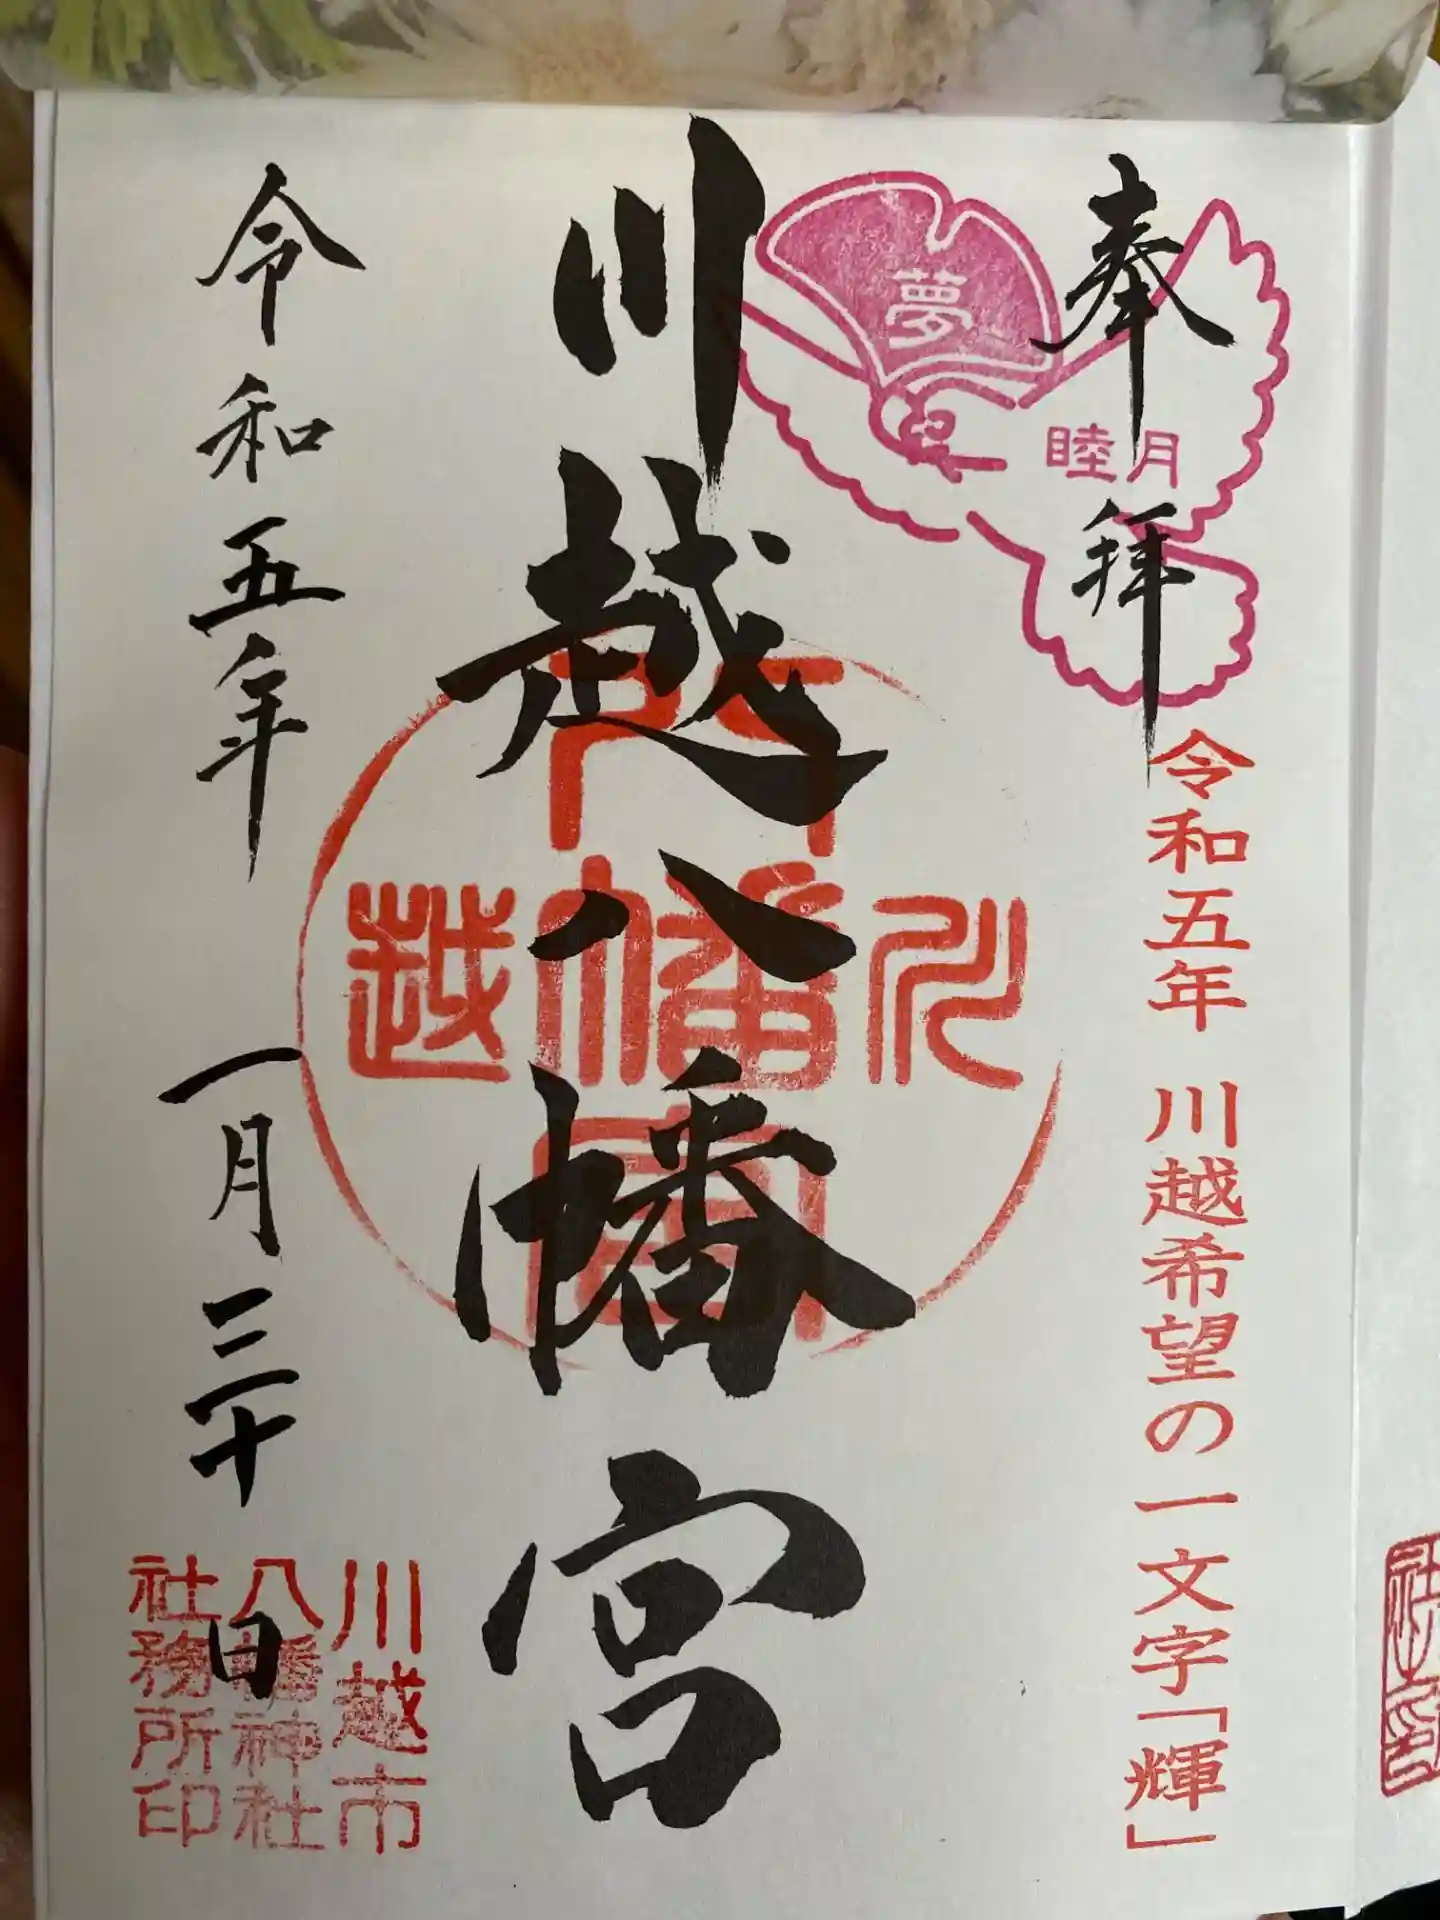 奉拝
夢
睦月
令和五年 川越希望の一文字「輝」
川越八幡宮
八幡宮
川
越
令和五年 一月三十日
川越市
八幡神社
社務所印